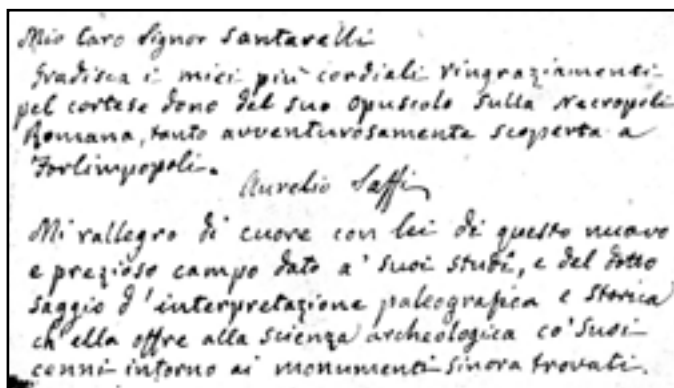 Mio Caro Signor Santarelli
Gradisca i miei più cordiali ringraziamenti
pel cortese dono del suo opuscolo sulla Necropoli
Romana, tanto avventurosamente scoperta a
Forlimpopoli.
Aurelio Saffi
Mi rallegro di cuore con lei di questo nuovo
e prezioso campo dato a' suoi studî, e del dotto
saggio d'interpretazione paleografica e storica
ch'ella offre alla scienza archeologica co' suoi
cenni intorno ai monumenti sinora trovati.